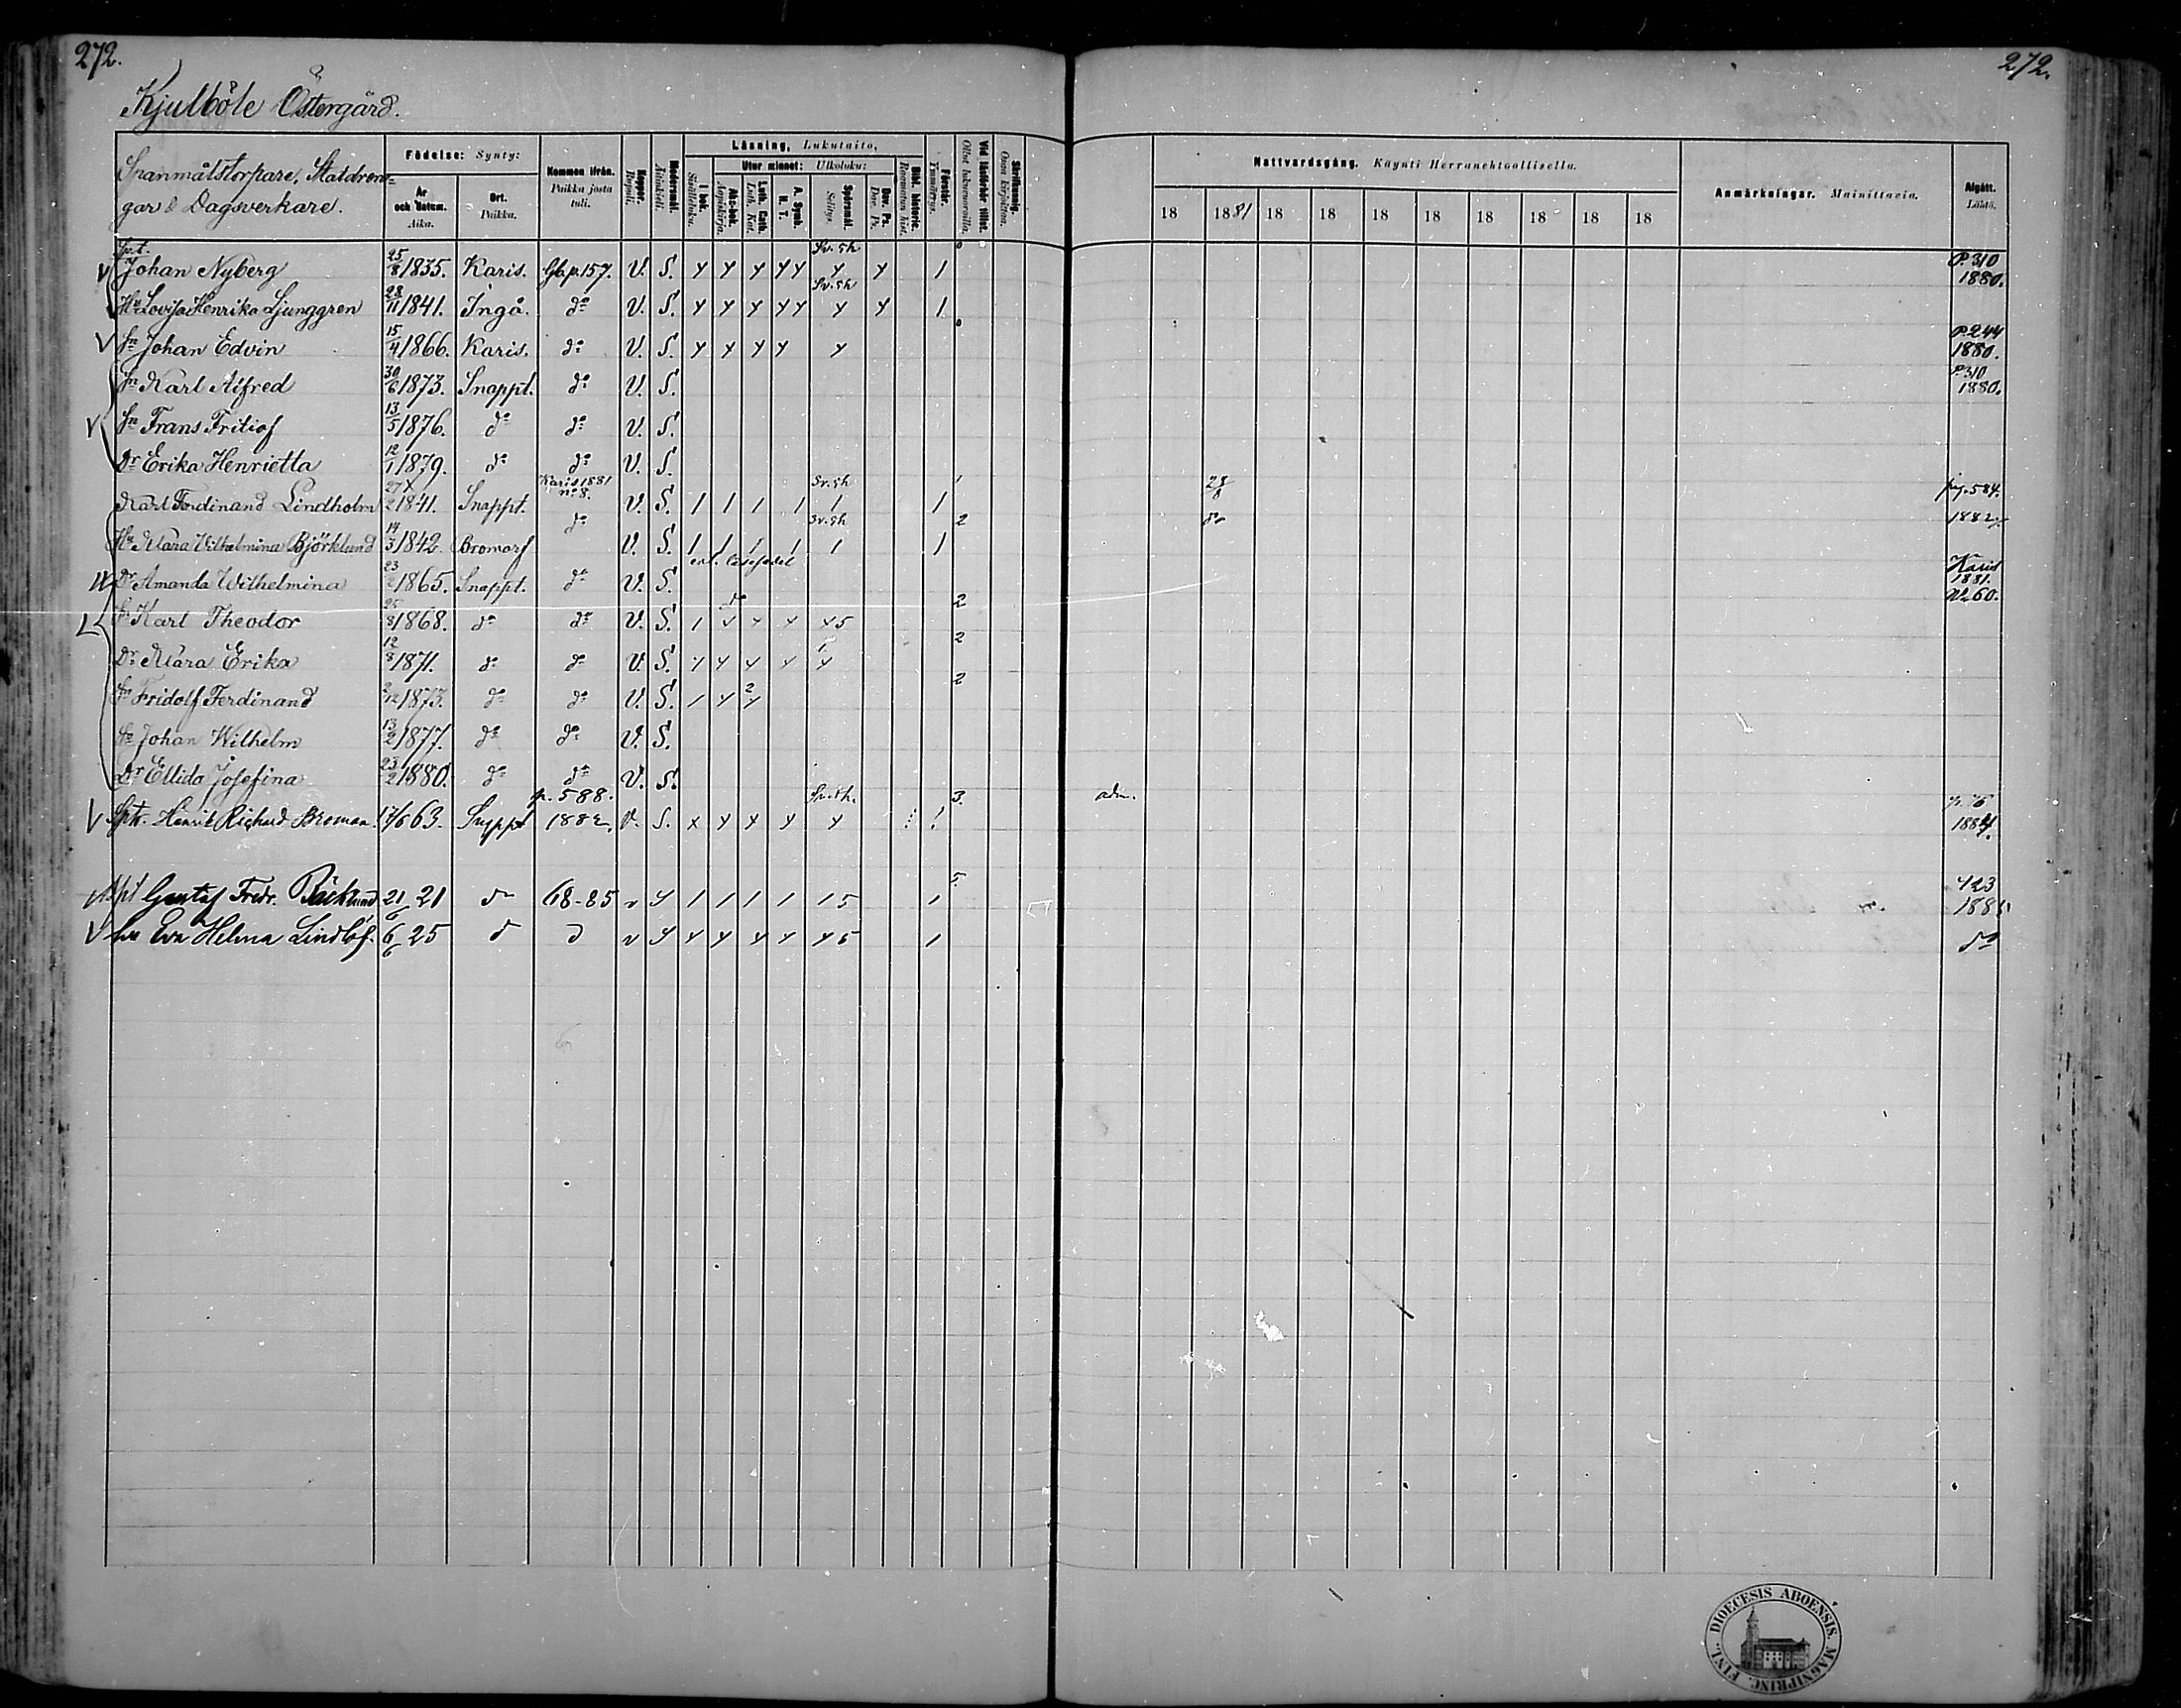 272.
272.
Kjulböle Östergård.
Spanmålstorpare, Statdrän-
gar & Dagsverkare.
Födelse: Synty:
År och datum. Aika.
Ort. Paikka.
Kommen ifrån. Paikka josta tuli.
Koppor. Rupuli.
Modersmål. Äidinkieli.
Läsning, Lukutaito,
I bok. Sisältäluku.
Utur minnet: Ulkoluku:
Abc-bok. Aapiskirja.
Luth. Cath. Luth. Kat.
A. Symb. H. T.
Spörsmål. Selitys.
Dav. Ps. Dav. Ps.
Bibl. historie. Raamatun hist.
Förstår. Ymmärrys.
Vid läsförhör tillst. Ollut lukuvuoroilla.
Skrifkunnig. Osaa kirjoittaa.
Nattvardsgång. Käynti Herranehtoollisella.
18 1881 18 18 18 18 18 18 18 18
Anmärkningar. Mainittavia.
Afgått. Lähtö.
Spt. Sv. sh 0
Johan Nyberg 25/8 1835. Karis. Gb. p. 157. V. S. 1 P. 310 1880.
Hu Lovisa Henrika Ljunggren 28/11 1841. Ingå. do V. S. Sv. sh 1
Sn Johan Edvin 15/4 1866. Karis. do V. S. 0 P. 244 1880.
Sn Karl Alfred 30/6 1873. Snappt. do V. S. P. 310 1880.
Sn Frans Fritiof 13/5 1876. do do V. S.
Dr Erika Henrietta 12/1 1879. do do V. S.
Karl Ferdinand Lindholm 27/2 1841. Snappt. Karis 1881 no 8. V. S. 1 1 1 1 Sv. sh 1 1 28/8 pag. 584. 1882
Hu Maria Vilhelmina Björklund 14/3 1842. Bromarf do V. S. 1 1 1 1 Sv. sh 1 1 2 do
Dr Amanda Wilhelmina 23/ 1865. Snappt. do V. S. Karis 1881. No 60.
Sn Karl Theodor 25/8 1868. do do V. S. 1 5 2
Dr Maria Erika 12/8 1871. do do V. S. 2
Sn Fridolf Ferdinand 2/12 1873. do do V. S. 1 2 2
Sn Johan Wilhelm 13/2 1877. do do V. S.
Dr Ellida Josefina 23/2 1880. do do V. S.
Henrik Richard Broman. 17/6 63. Snppt p. 588. 1882. V. S. 3. adm. 1884.
Gustaf Fredr. Bäcklund 21/6 21 do 68-85 v S 1 1 1 1 1 5 1 5. 423
hu Eva Helena Lindlöf. 6/6 25 d d v S 5 1 do
FINL. DIOECESIS ABOENSIS. MAGNIPRINC.